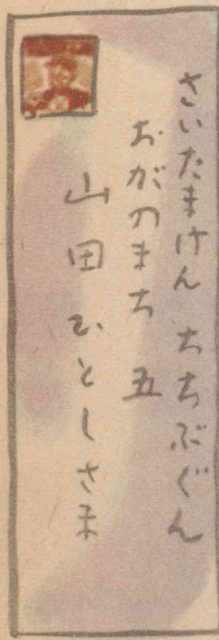 さいたまけん ちちぶぐん
おがのまち 五
山田ひとしさま